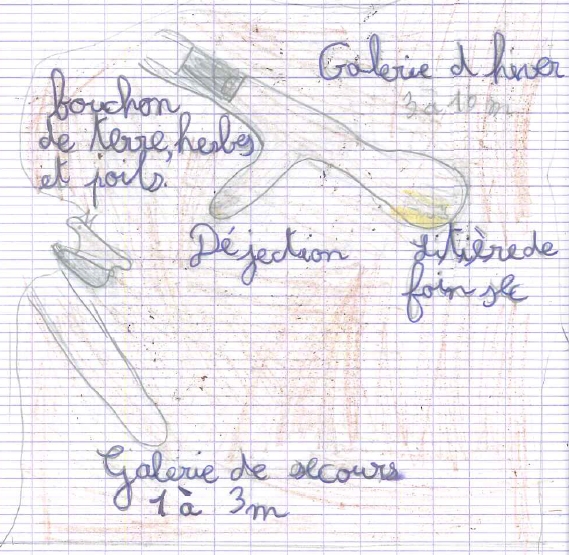 Galerie d'hiver
3 à 10 m
bouchon
de terre, herbes
et poils.
Déjection
Litière de
foin sec
Galerie de secours
1 à 3m